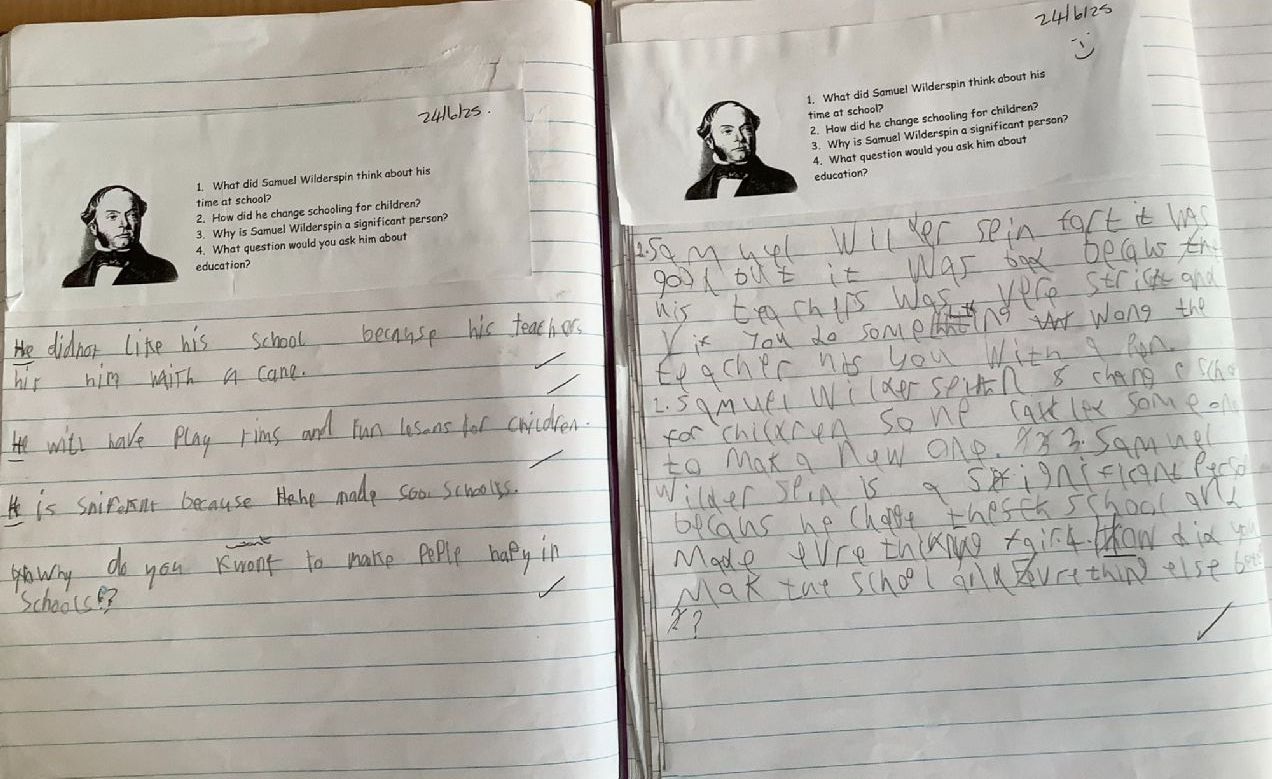 24/6/25.
1. What did Samuel Wilderspin think about his
time at school?
2. How did he change schooling for children?
3. Why is Samuel Wilderspin a significant person?
4. What question would you ask him about
education?
He didnot like his school because his teachers
hit him with a cane.
He will have Play tims and fun lesons for children.
He is because He made 500 schools.
Why do you want to make PePle hapy in
Schools?
24/6/25
1. What did Samuel Wilderspin think about his
time at school?
2. How did he change schooling for children?
3. Why is Samuel Wilderspin a significant person?
4. What question would you ask him about
education?
1. Samuyel Wilderspin it was
good but it was bad becaus
his teachers was vere strict and
if you do something wong the
teacher his you with a
2. Samuel Wilderspin chang
for children so he someone
to mak a new one. 3. Samuel
Wilderspin is a significant Perso
becaus he school and
Made evrething 4. How did you
Mak the school and evrething else
?